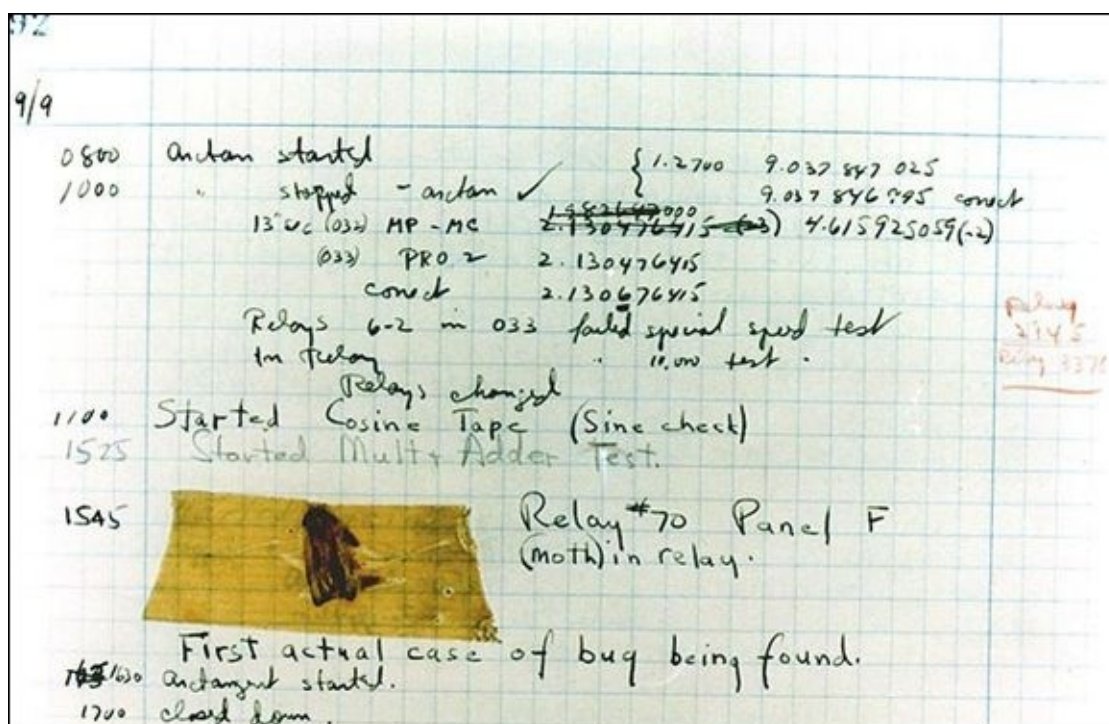 92
9/9
0800 arctan started { 1.2700 9.037 847 025
1000 " stopped - arctan ✓ 9.037 846 995 correct
13"uc (032) MP - MC 1.982647000 2.130476415 (-3) 4.615925059(-2)
(033) PRO 2 2.130476415
correct 2.130676415
Relays 6-2 in 033 failed special speed test
In Relay " 10,000 test .
Relays changed
1100 Started Cosine Tape (Sine check)
1525 Started Mult + Adder Test.
1545 Relay #70 Panel F
(moth) in relay.
First actual case of bug being found.
1630 arctangent started.
1700 closed down.
Relay
Relay